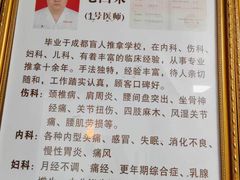 (1号医师)
毕业于成都盲人推拿学校，在内科、伤科、
妇科、儿科，有着丰富的临床经验，从事专业
推拿十余年。手法独特，经验丰富，待人亲切
随和，工作踏实认真，顾客口碑好。
伤科：颈椎病、肩周炎、腰间盘突出、坐骨神
经痛、关节扭伤、四肢麻木、风湿关节
痛、腰肌劳损等。
内科：各种内型头痛、感冒、失眠、消化不良、
慢性胃炎、痛风
妇科：月经不调、痛经、更年期综合症、乳腺